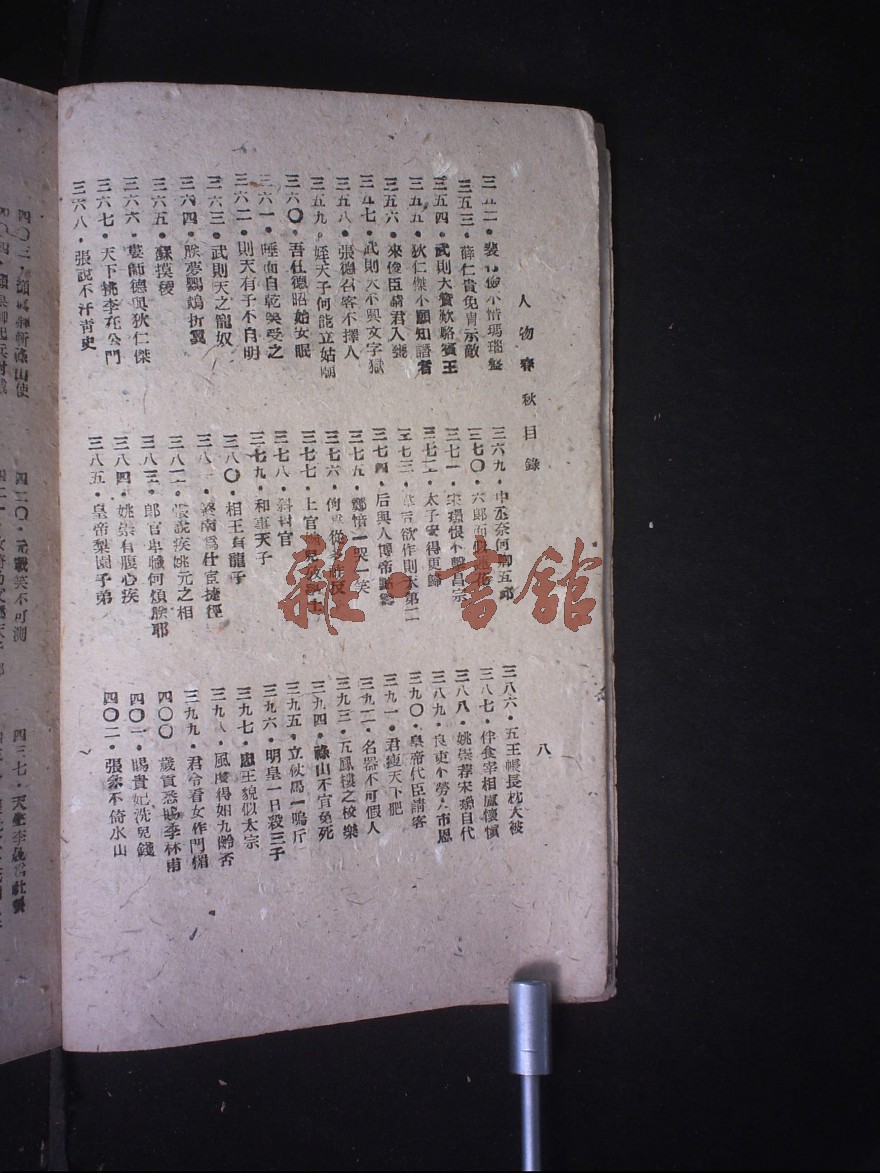 人物春秋目錄
八
三五二·裴行儉不惜瑪瑙盤
三五三·薛仁貴免冑示敵
三五四·武則天贊歎駱賓王
三五五·狄仁傑不願知譖者
三五六·來俊臣請君入甕
三五七·武則天不興文字獄
三五八·張德召客不擇人
三五九·姪天子何能立姑廟
三六〇·吾社德昭始安眠
三六一·唾面自乾笑受之
三六二·則天有子不自明
三六三·武則天之寵奴
三六四·朕夢鸚鵡折翼
三六五·蘇摸稜
三六六·婁師德與狄仁傑
三六七·天下桃李在公門
三六八·張說不汙靑史
三六九·中丞奈何卿五郎
三七〇·六郎面似蓮花
三七一·宋璟恨不擊昌宗
三七二·太子安得更歸
三七三·韋后欲作則天第二
三七四·后與人博帝點籌
三七五·鄭愔一哭一笑
三七六·
三七七·上官
三七八·斜封官
三七九·和事天子
三八〇·相王眞龍子
三八一·終南爲仕宦捷徑
三八二·張說疾姚元之相
三八三·郎官卑職何煩朕耶
三八四·姚崇有腹心疾
三八五·皇帝梨園子弟
三八六·五王帳長枕大被
三八七·伴食宰相盧懷愼
三八八·姚崇荐宋璟自代
三八九·良吏不勞人市恩
三九〇·皇帝代臣請客
三九一·君瘦天下肥
三九二·名器不可假人
三九三·五鳳樓之校樂
三九四·祿山不宜免死
三九五·立仗馬一鳴斥
三九六·明皇一日殺三子
三九七·忠王貌似太宗
三九八·風度得如九齡否
三九九·君今看女作門楣
四〇〇·歲貢悉賜李林甫
四〇一·賜貴妃洗兒錢
四〇二·張彖不倚水山
四二〇·元載笑不可測
四三七·天生李晟爲社稷
雜·書館